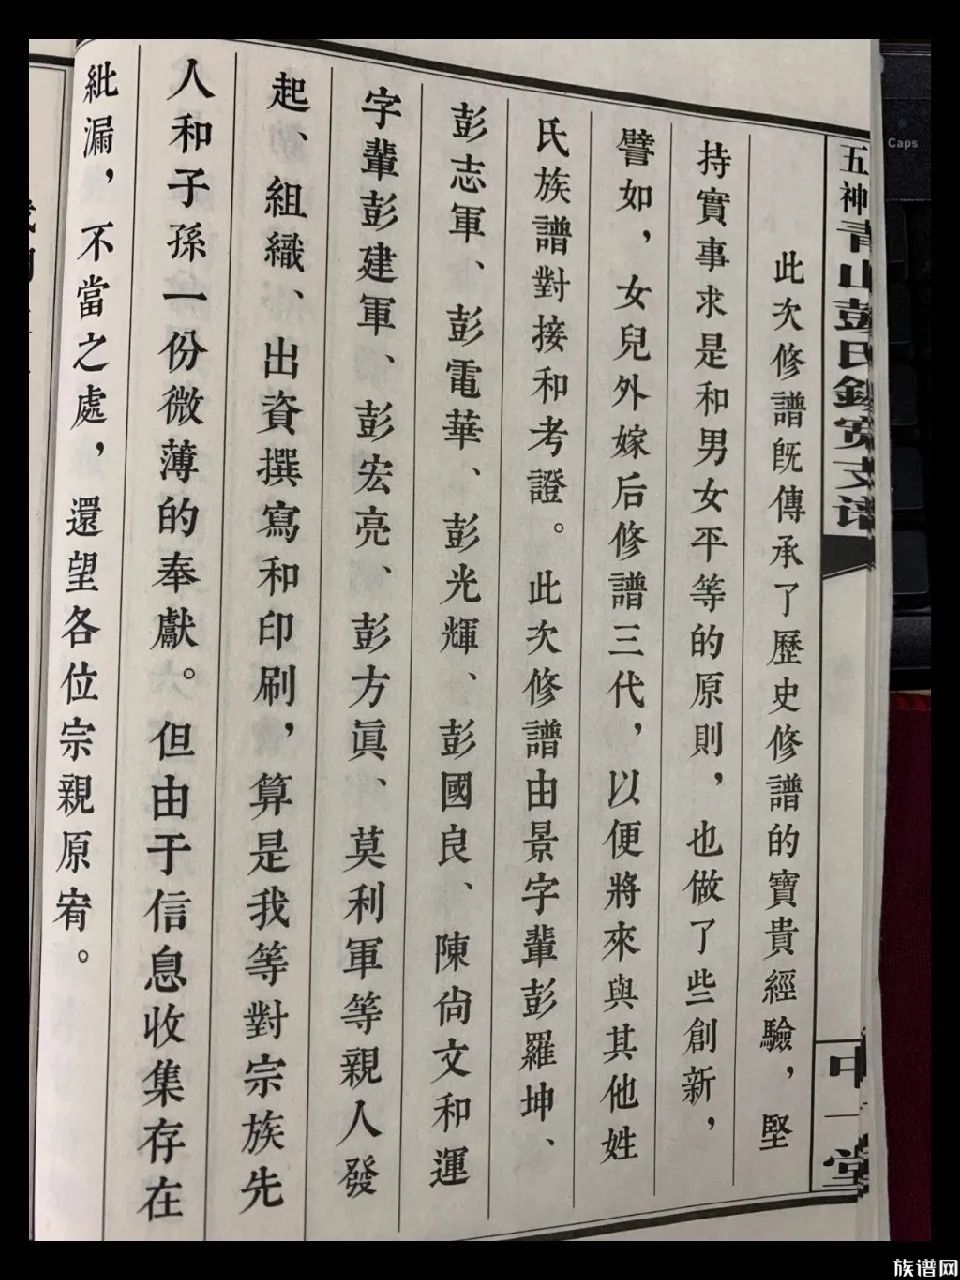 此次修譜旣傳承了歷史修譜的寶貴經驗，堅
持實事求是和男女平等的原則，也做了些創新，
譬如，女兒外嫁后修譜三代，以便將來與其他姓
氏族譜對接和考證。此次修譜由景字輩彭羅坤、
彭志軍、彭電華、彭光輝、彭國良、陳尙文和運
字輩彭建軍、彭宏亮、彭方眞、莫利軍等親人發
起、組織、出資撰寫和印刷，算是我等對宗族先
人和子孫一份微薄的奉獻。但由于信息收集存在
紕漏，不當之處，還望各位宗親原宥。
五神青山彭氏
支谱
一
堂
Caps
族谱网